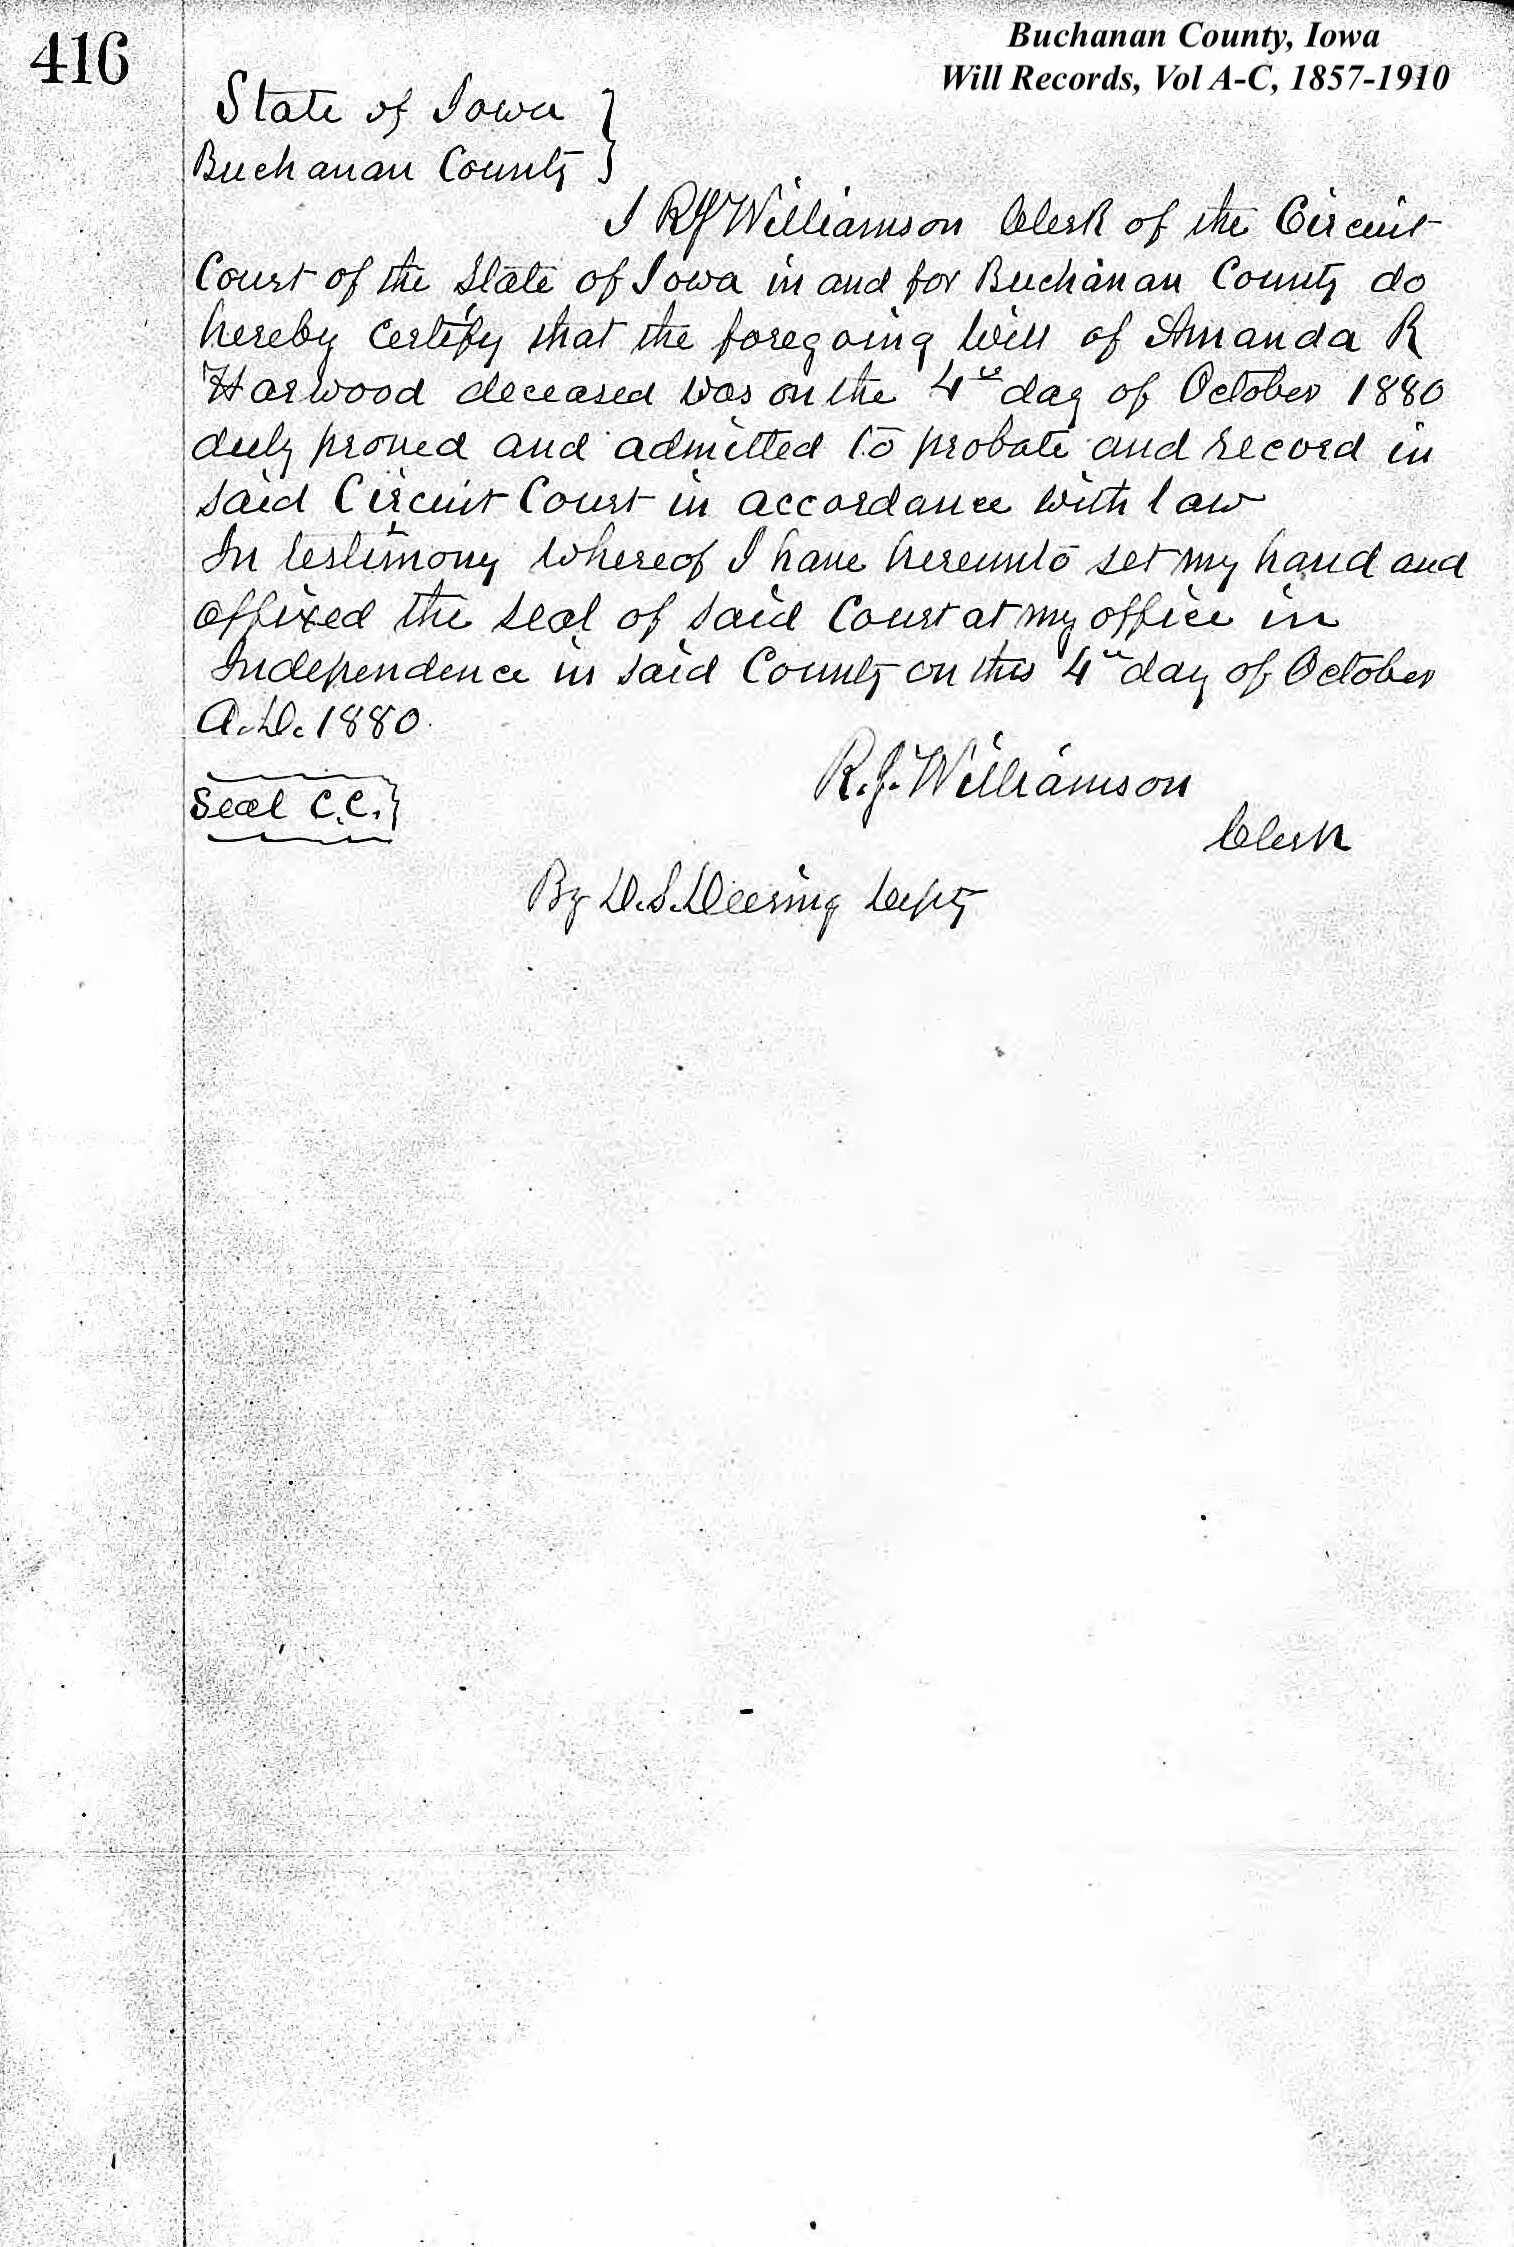 416
Buchanan County, Iowa
Will Records, Vol A-C, 1857-1910
State of Iowa }
Buchanan County }
I R J Williamson Clerk of the Circuit
Court of the State of Iowa in and for Buchanan County do
hereby certify that the foregoing Will of Amanda R
Harwood deceased was on the 4th day of October 1880
duly proved and admitted to probate and record in
said Circuit Court in accordance with law
In testimony whereof I have hereunto set my hand and
affixed the seal of said Court at my office in
Independence in said County on this 4th day of October
A.D. 1880.
R.J. Williamson
Seal C.C. }
Clerk
By D.S. Deering Depty